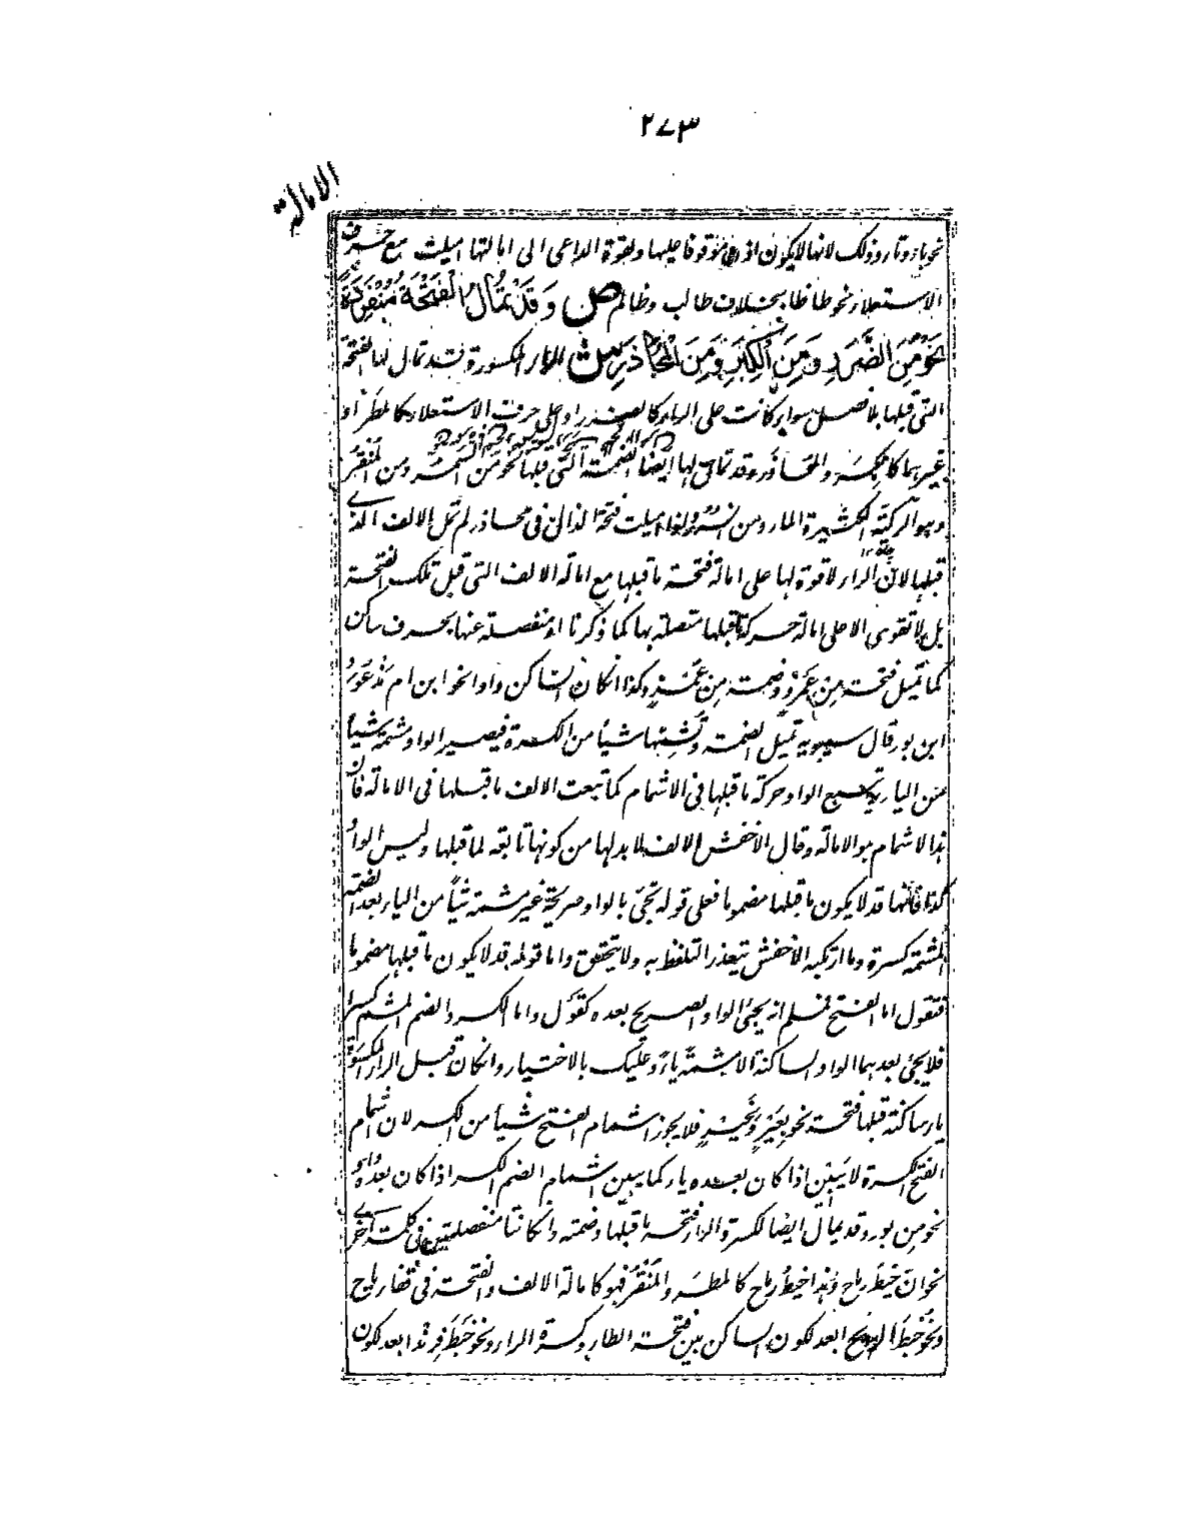 ٢٧٣
الامالة
نحو بار وتار وذلك لانها لا يكون اذن موقوفا عليها ولقوة الداعى الى امالتها اميلت مع حرف
الاستعلاء نحو طا ظا بخلاف طالب وظالم ص وَقَدْ تُمَالُ الْفَتْحَةُ مُنْفَرِدَةً
نَحْوُ مِنَ الضَّرَرِ وَمِنَ الْكِبَرِ وَمِنَ الْمُحَاذِرِ ش الراء المكسورة قد تمال لها الفتحة
التى قبلها بلا فصل سواء كانت على الياء كالغير او على حرف الاستعلاء كالمطر او
غيرهما كالكبر والمحاذر وقد تمال لها ايضا الضمة التى قبلها نحو من السمر ومن المنقر
وهو الركية الكثيرة الماء ومن السرر واذا اميلت فتحة الذال فى محاذر لم تمل الالف التى
قبلها لان الراء لا قوة لها على امالة فتحة ما قبلها مع امالة الالف التى قبل تلك الفتحة
بل لا تقوى الا على امالة حركة قبلها متصلة بها كما ذكرنا او منفصلة عنها بحرف ساكن
كما تميل فتحة من عمرو وضمة من عمر وكذا انكان الساكن واوا نحو ابن ام مذعور
ابن بور قال سيبويه تميل الضمة وتشمها شيأ من الكسرة فيصير الواو مشمة شيأ
من الياء وتتبع الواو حركة ما قبلها فى الاشمام كما تبعت الالف ما قبلها فى الامالة فان
هذا الاشمام هو الامالة وقال الاخفش الالف لا بد لها من كونها تابعة لما قبلها وليس الواو
كذا فانها قد لا يكون ما قبلها مضموما فعلى قوله تجئ بالواو صريحة غير مشمة شيأ من الياء بعد الضمة
المشمة كسرة وما ارتكبه الاخفش يتعذر التلفظ به ولا يتحقق واما قوله قد لا يكون ما قبلها مضموما
فنقول اما الفتح فمسلم انه يجئ الواو الصريح بعده كقول واما الكسر والضم المشم كسرا
فلا يجئ بعدهما الواو الساكنة الا مشمة ياء وعليك بالاختيار وانكان قبل الراء المكسورة
ياء ساكنة قبلها فتحة نحو بغير وبخير فلا يجوز اشمام الفتح شيأ من الكسر لان اشمام
الفتح الكسرة لا يتبين اذا كان بعده ياء كما يبين اشمام الضم الكسر اذا كان بعده واو
نحو من بور وقد يمال ايضا لكسرة الراء فتحة ما قبلها وضمته وانكانتا منفصلتين فى كلمة اخرى
نحو ان خبط رياح وهذا خبط رياح كالمطر والمنقر فهو كامالة الالف والفتحة فى قفا رياح
ونحو خبط الريح ابعد لكون الساكن بين فتحة الطاء وكسرة الراء ونحو خبط فرند ابعد لكون